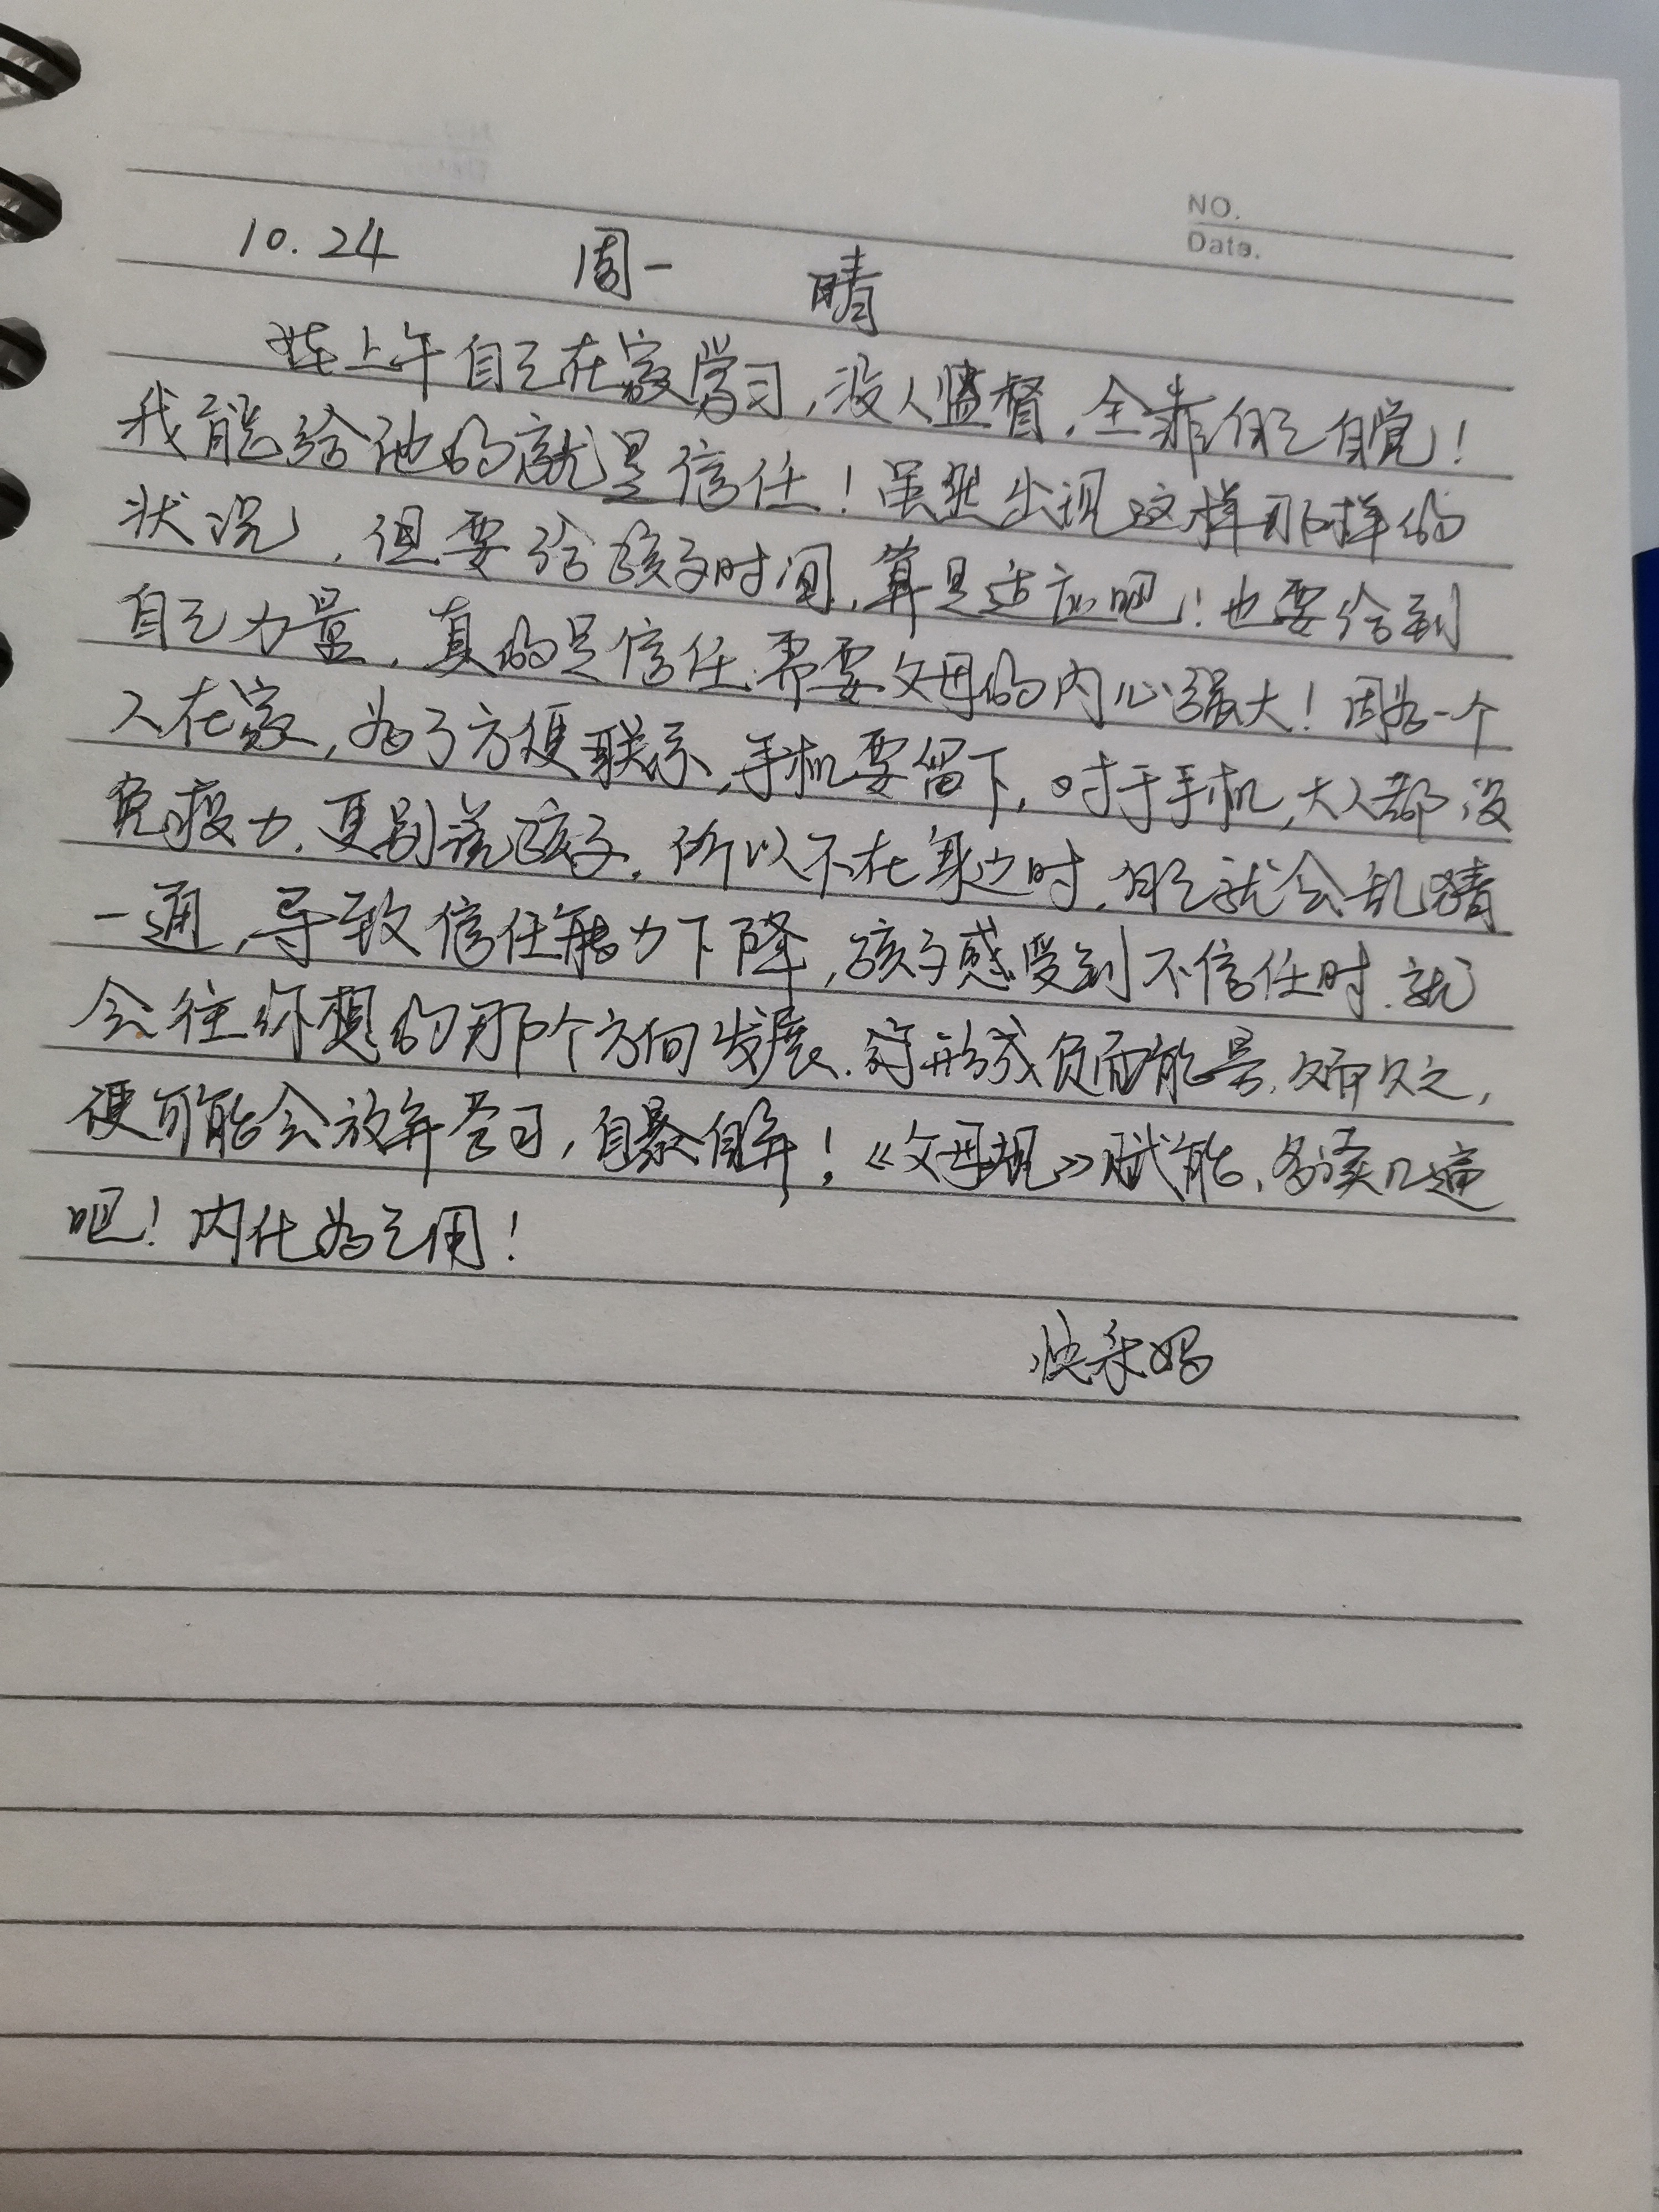 NO.
Date.
10.24 周一 晴
娃上午自己在家学习,没人监督,全靠自己自觉!
我能给他的就是信任!虽然出现这样那样的
状况,但要给孩子时间,算是适应吧!也要给到
自己力量,真的是信任需要父母的内心强大!因为一个
人在家,为了方便联系,手机要留下,对于手机,大人都没
免疫力,更别说孩子,所以不在身边时,自己就会乱猜
一通,导致信任能力下降,孩子感受到不信任时,就
会往你想的那个方向发展,形成负面能量,久而久之,
便可能会放弃学习,自暴自弃!《父母规》赋能,多读几遍
吧!内化为己用!
快乐妈